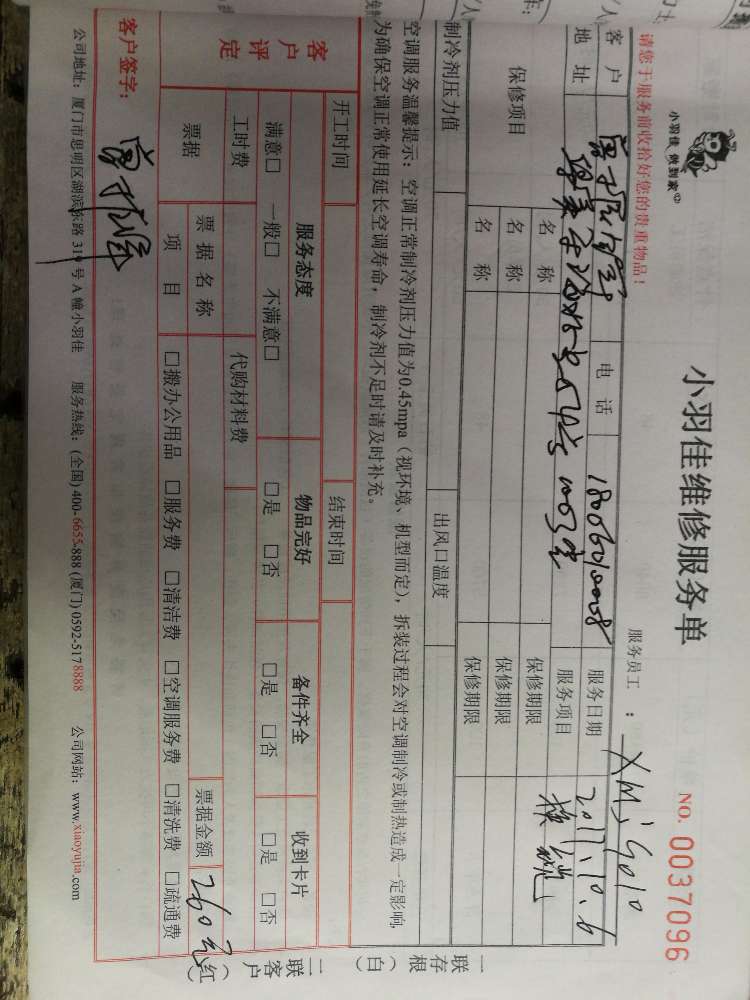 小羽佳 做到家
小羽佳维修服务单
NO. 0037096
请您于服务前收拾好您的贵重物品！
服务员工：XM35010
客户 电话 18060100008 服务日期 2017.10.6
地址 服务项目
保修项目 名称 保修期限
名称 保修期限
名称 保修期限
制冷剂压力值 出风口温度
空调服务温馨提示：空调正常制冷剂压力值为0.45mpa（视环境、机型而定），拆装过程会对空调制冷或制热造成一定影响，
为确保空调正常使用延长空调寿命，制冷剂不足时请及时补充。
开工时间 结束时间
客户评定 服务态度 物品完好 备件齐全 收到卡片
满意□ 一般□ 不满意□ □是 □否 □是 □否 □是 □否
工时费 代购材料费
票据 票据名称 票据金额 260元
项目 □搬办公用品 □服务费 □清洁费 □空调服务费 □清洗费 □疏通费
客户签字：
公司地址：厦门市思明区湖滨东路319号A幢小羽佳 服务热线：(全国) 400-6655-888 (厦门) 0592-5178888 公司网站：www.xiaoyujia.com
一联存根（白）
二联客户（红）